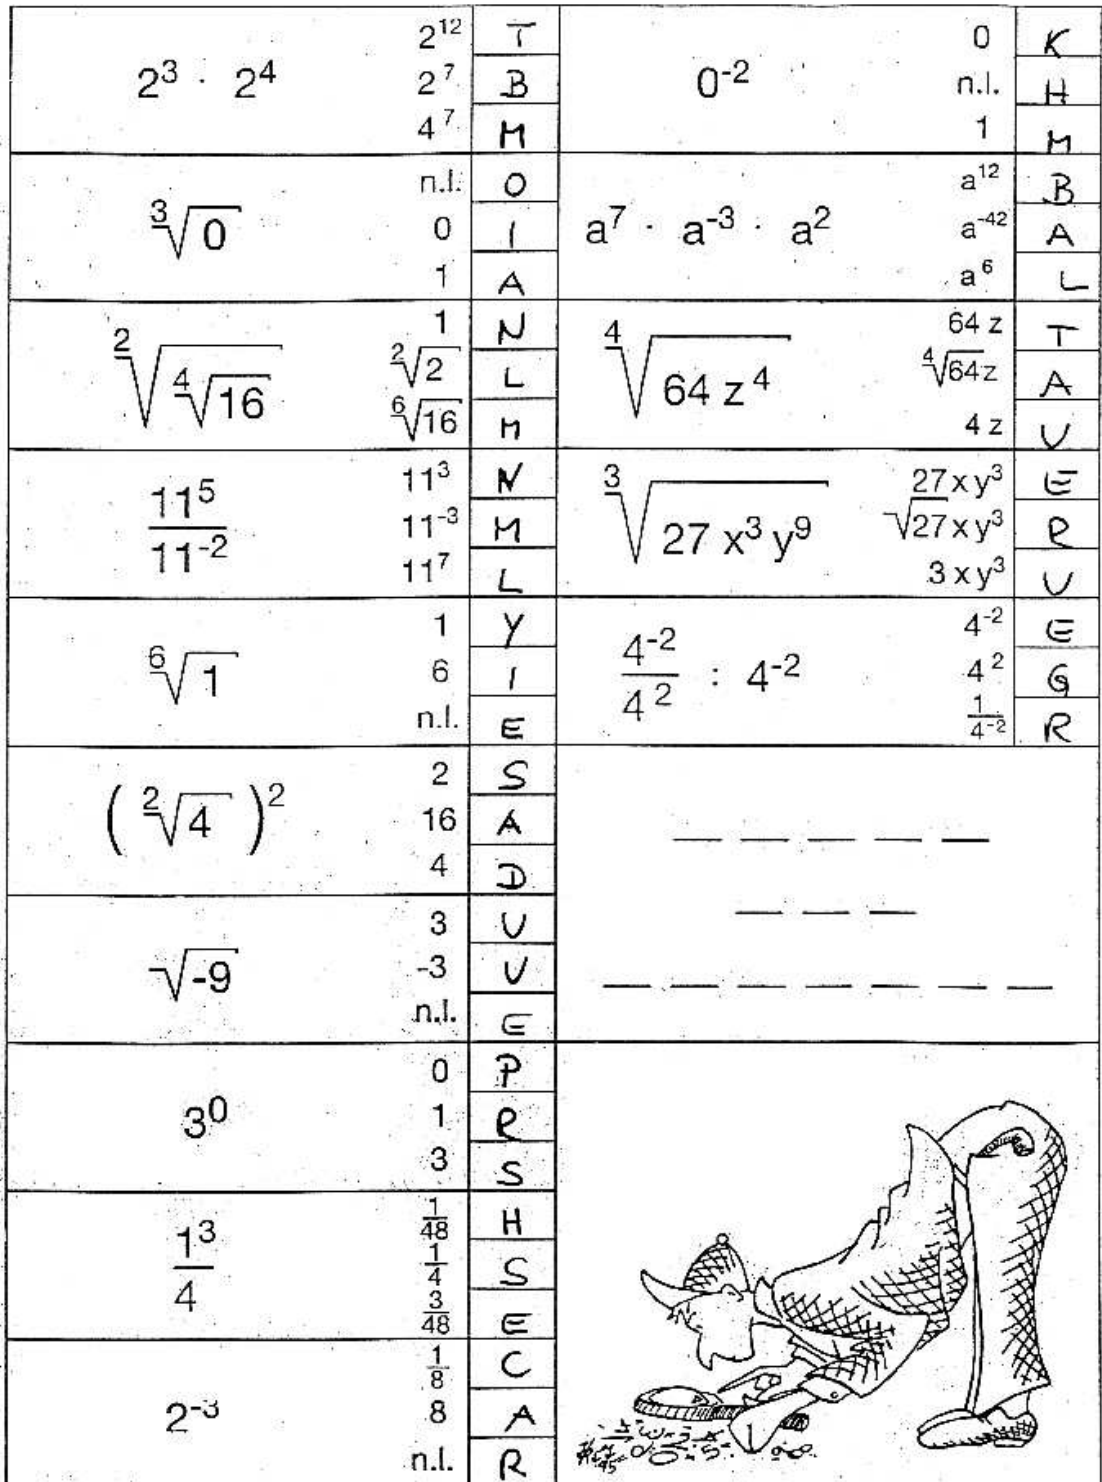 2³ · 2⁴
2¹² T
2⁷ B
4⁷ M
³√0
n.l. O
0 I
1 A
²√(⁴√16)
1 N
²√2 L
⁶√16 M
11⁵
11⁻²
11³ N
11⁻³ M
11⁷ L
⁶√1
1 Y
6 I
n.l. E
( ²√4 )²
2 S
16 A
4 D
√-9
3 U
-3 U
n.l. E
3⁰
0 P
1 R
3 S
1³
4
1/48 H
1/4 S
3/48 E
2⁻³
1/8 C
8 A
n.l. R
0⁻²
0 K
n.l. H
1 M
a⁷ · a⁻³ · a²
a¹² B
a⁻⁴² A
a⁶ L
⁴√(64 z⁴)
64 z T
⁴√64 z A
4 z U
³√(27 x³ y⁹)
27 x y³ E
√27 x y³ R
3 x y³ U
4⁻²
4² : 4⁻²
4⁻² E
4² G
1/4⁻² R